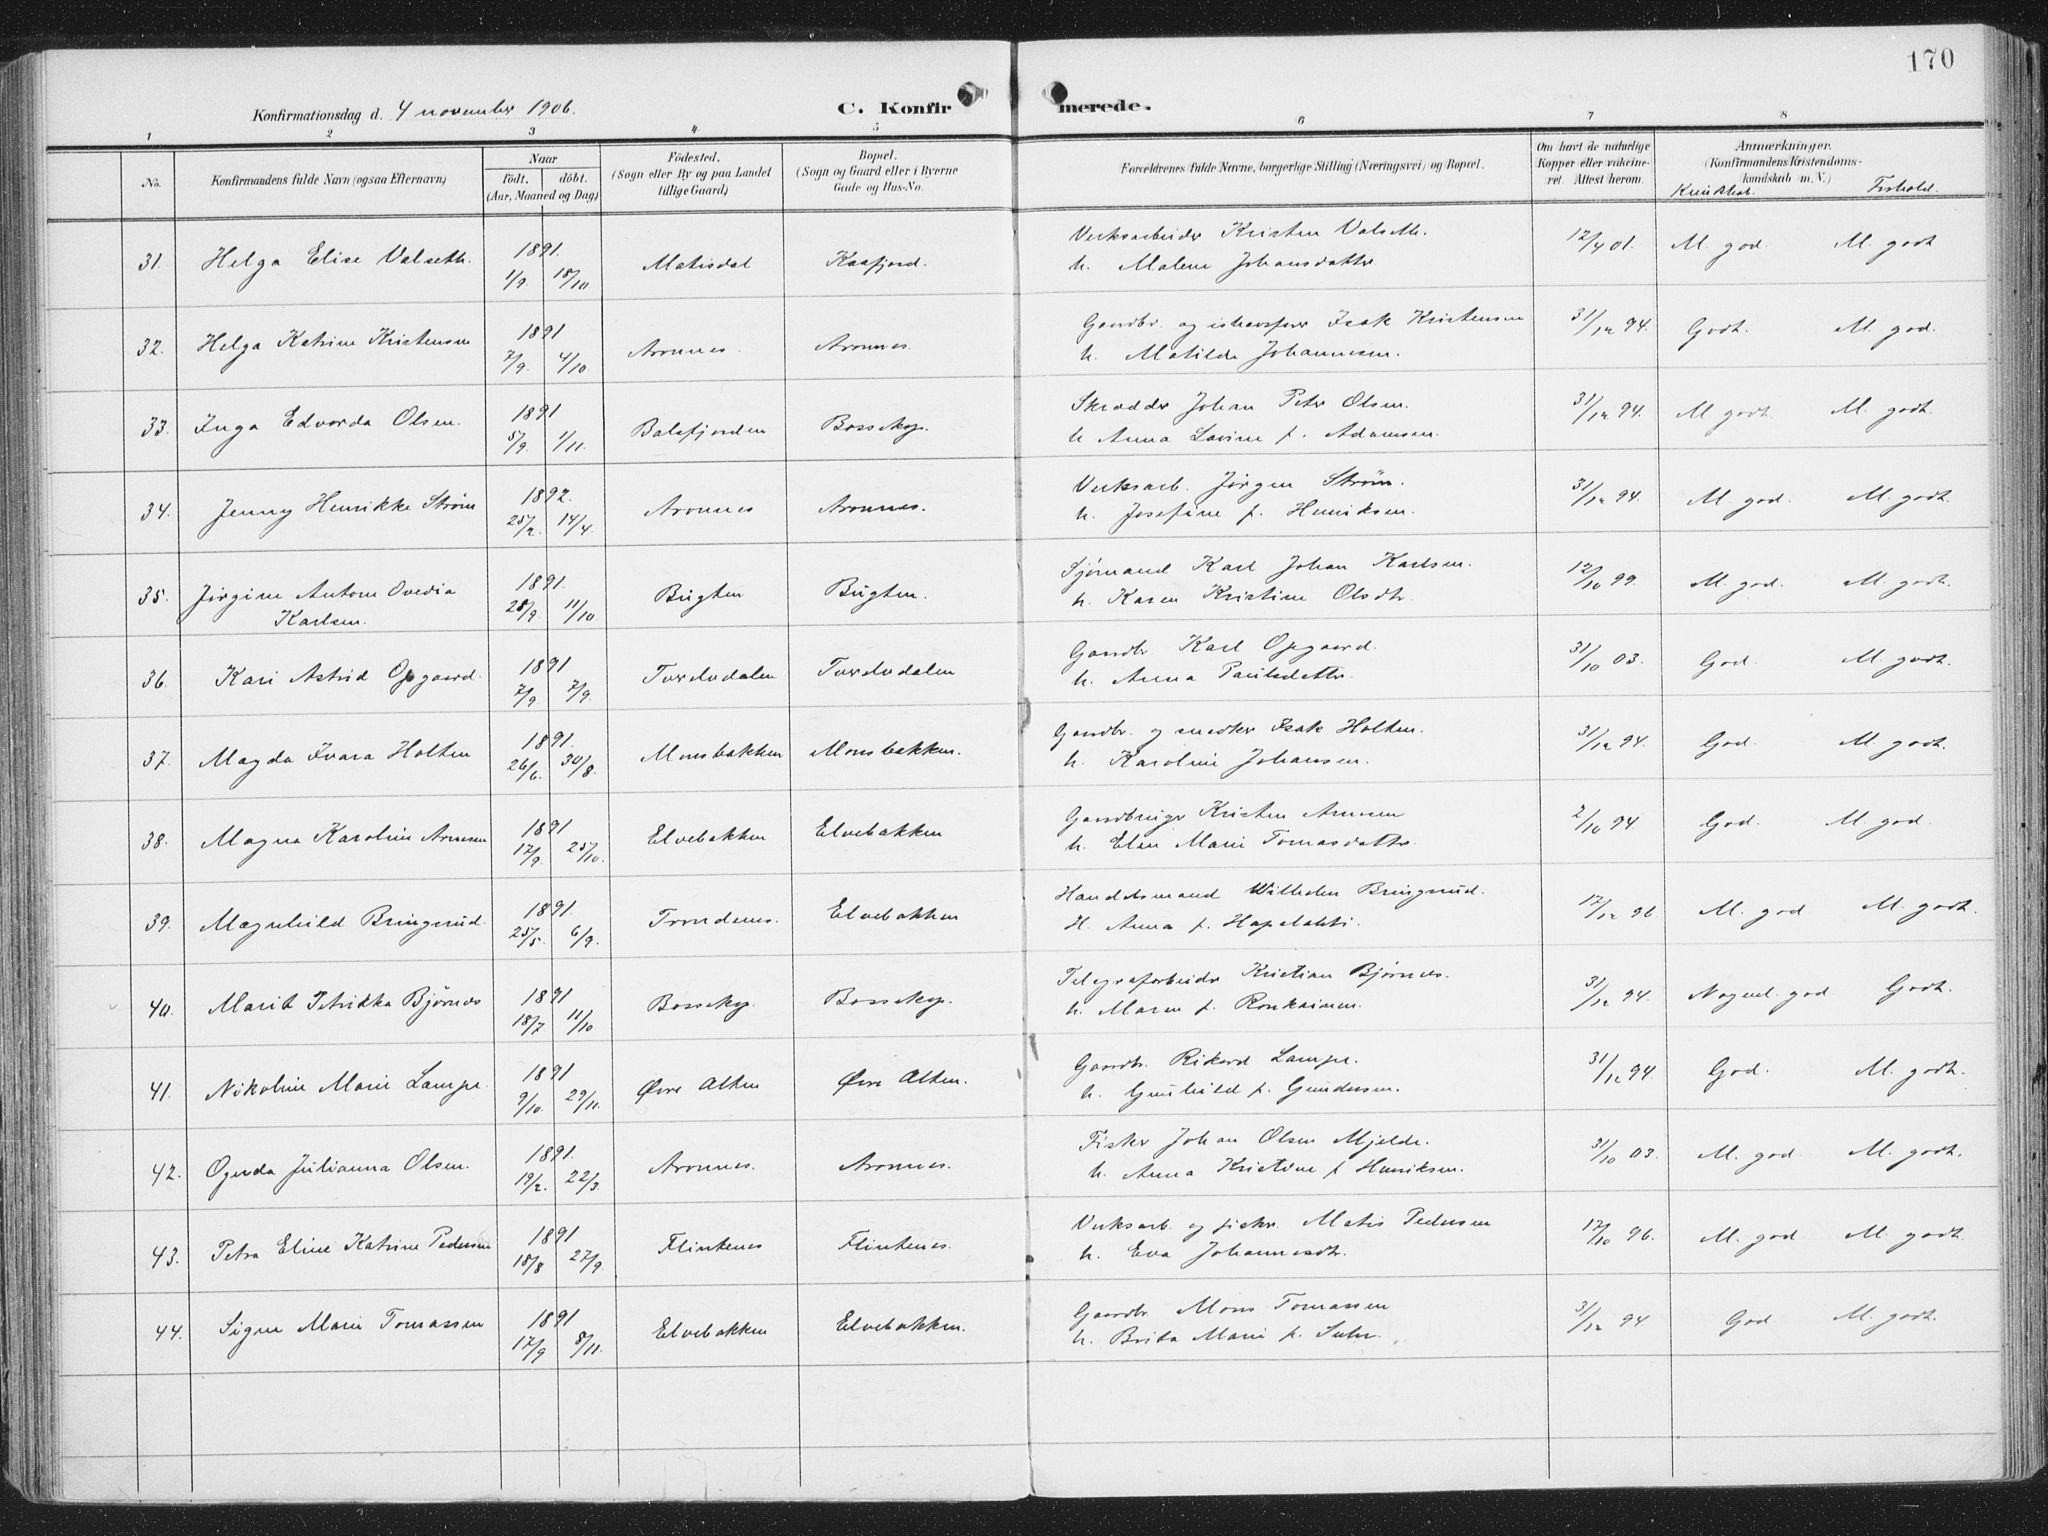 170
Konfirmationsdag d. 4 november 1906.
C. Konfirmerede.
1 2 3 4 5 6 7 8
No.
Konfirmandens fulde Navn (ogsaa Efternavn)
Naar
födt. döbt.
(Aar, Maaned og Dag)
Födested.
(Sogn eller By og paa Landet
tillige Gaard)
Bopæl.
(Sogn og Gaard eller i Byerne
Gade og Hus-No.
Forældrenes fulde Navne, borgerlige Stilling (Næringsvei) og Bopæl.
Om havt de naturlige
Kopper eller vakcine-
ret. Attest herom.
Anmærkninger.
(Konfirmandens Kristendoms-
kundskab m. V.)
Kundskab. Forhold.
31. Helga Elise Valseth. 1891. 1/9. 18/10 Matisdal Kaafjord. Verksarbeider Kristen Valseth. 12/4 01. M. god. M. godt
h. Malene Johansdatter
32. Helga Katrine Kristensen 1891 7/9. 4/10. Aronnes. Aronnes. Gaardbr. og ishavsfarer Isak Kristensen 31/12 94. Godt. M. god.
h. Matilde Johannesen.
33. Inga Edvarda Olsen. 1891 5/9. 1/11. Balsfjorden Bossekop. Skrædder Johan Peter Olsen. 31/12 94. M godt. M. godt.
h Anna Lovine f. Adamsen.
34. Jenny Henrikke Strøm 1892. 25/2. 14/4. Aronnes Aronnes. Verksarb. Jørgen Strøm. 31/12 94. M. god. M. godt.
h. Josefine f. Henriksen.
35. Jørgine Antone Ovedia 1891. 28/9. 11/10 Bugten Bugten. Sjømand Karl Johan Karlsen. 12/10 99. M. god. M. godt.
Karlsen. h. Karen Kristine Olsdtr.
36. Kari Astrid Opgaard. 1891 7/9. 7/9. Tverelvdalen Tverelvdalen Gaardbr Karl Opgaard. 31/10 03. God. M. godt.
h. Anna Paulsdatter.
37. Magda Ivara Holten 1891. 26/6. 30/8. Monsbakken Monsbakken. Gaardbr. og snedker Isak Holten. 31/12 94. God. M. godt.
h. Karoline Johansen.
38. Magna Karoline Arnesen 1891 17/9. 25/10. Elvebakken Elvebakken Gaardbruger Kristen Arnesen 2/10 94. God. M. god.
h. Elen Marie Tomasdatter.
39. Magnhild Bringsrud. 1891. 25/5. 6/9. Trondenes. Elvebakken Handelsmand Wilhelm Bringsrud. 17/12 96 M. god M. godt.
H. Anna f. Hapalahti.
40. Marit Petrikka Bjørnes 1891 18/7. 11/10 Bossekop. Bossekop. Telegrafarbeider Kristian Bjørnes. 31/12 94. Nogenl. god Godt.
h. Maren f. Ronkainen.
41. Nikoline Marie Lampe. 1891 9/10. 29/11. Øvre Alten Øvre Alten. Gaardbr. Rikard Lampe. 31/12 94. God. M. godt.
h. Gunhild f. Gundersen.
42. Ogenda Julianna Olsen. 1891. 19/2. 22/3. Aronnes. Aronnes. Fisker Johan Olsen Mjelde. 31/10 03. M. god. M. godt.
h. Anna Kristine f Henriksen.
43. Petra Eline Katrine Pedersen 1891 18/8 27/9. Flintenes Flintenes. Verksarb. og fisker. Matis Pedersen 17/10 96. M. god M. godt.
h. Eva Johannesdtr.
44. Signe Marie Tomassen 1891 17/9 8/11. Elvebakken Elvebakken. Gaardbr. Mons Tomassen 31/12 94 God M. godt.
h. Brita Marie f. Suhr.